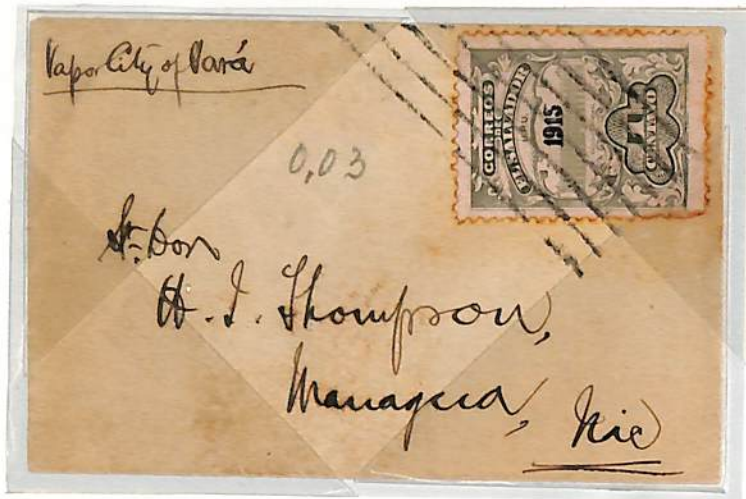 Vapor City of Pará
CORREOS
DE
EL SALVADOR
1915
CENTAVO
0,03
Sr. Don
H. I. Thompson,
Managua, Nic